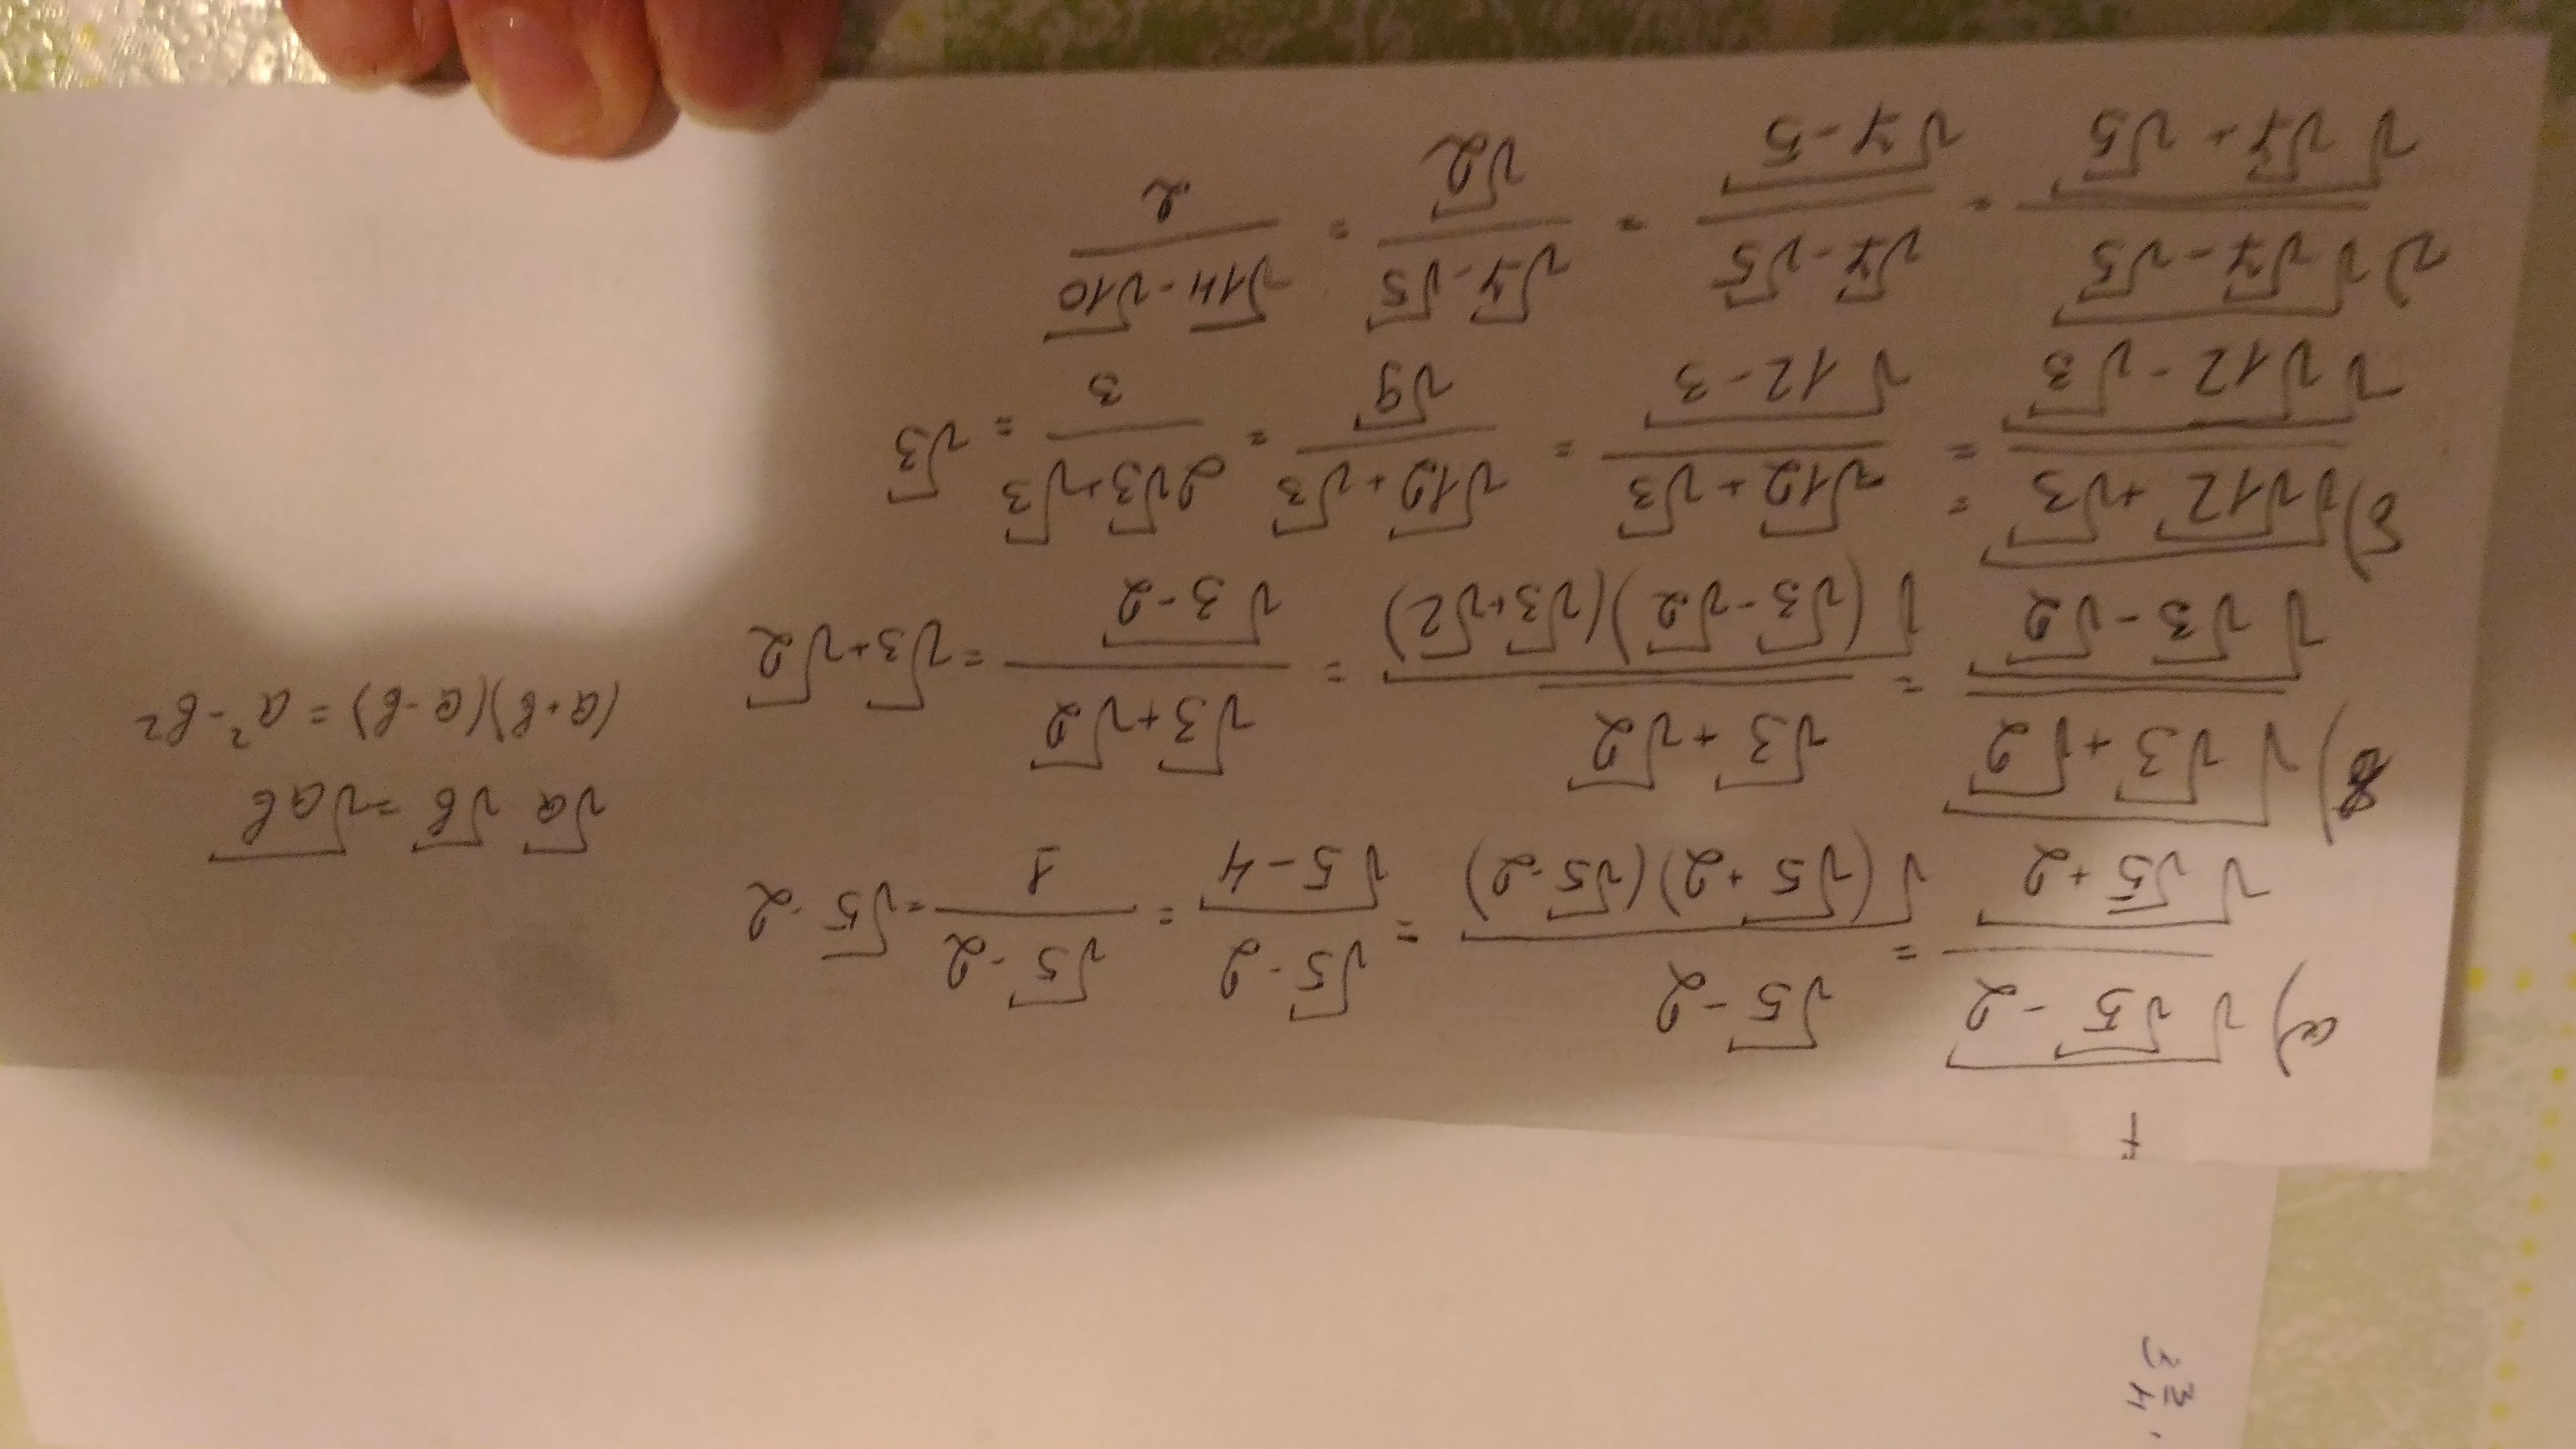 a) √(√5 - 2) / √(√5 + 2) = (√5 - 2) / √((√5 + 2)(√5 - 2)) = (√5 - 2) / √(5 - 4) = (√5 - 2) / 1 = √5 - 2
√a √b = √ab
в) √(√3 + √2) / √(√3 - √2) = (√3 + √2) / √((√3 - √2)(√3 + √2)) = (√3 + √2) / √(3 - 2) = √3 + √2
(a+b)(a-b) = a² - b²
б) √(√12 + √3) / √(√12 - √3) = = (√12 + √3) / √(12 - 3) = (√12 + √3) / √9 = (2√3 + √3) / 3 = √3
г) √(√7 - √5) / √(√7 + √5) = (√7 - √5) / √(7 - 5) = (√7 - √5) / √2 = (√14 - √10) / 2